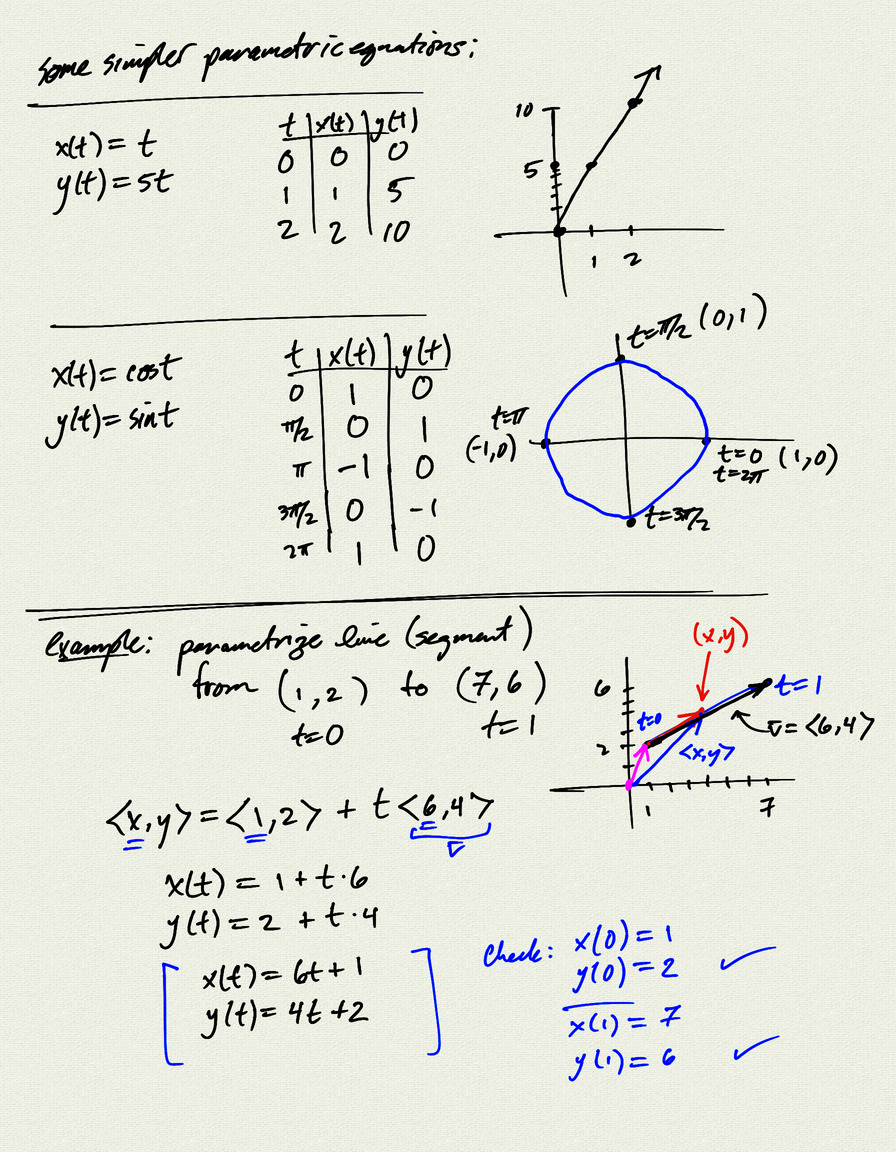 some simpler parametric equations:
x(t) = t
y(t) = 5t
t x(t) y(t)
0 0 0
1 1 5
2 2 10
10
5
1 2
x(t) = cost
y(t) = sint
t x(t) y(t)
0 1 0
π/2 0 1
π -1 0
3π/2 0 -1
2π 1 0
t=π/2 (0,1)
t=π
(-1,0)
t=0 (1,0)
t=2π
t=3π/2
example: parametrize line (segment)
from (1,2) to (7,6)
t=0 t=1
(x,y)
6
t=1
t=0
v = <6,4>
2
<x,y>
1 7
<x,y> = <1,2> + t<6,4>
v
x(t) = 1 + t·6
y(t) = 2 + t·4
x(t) = 6t+1
y(t) = 4t+2
check: x(0) = 1
y(0) = 2 ✓
x(1) = 7
y(1) = 6 ✓